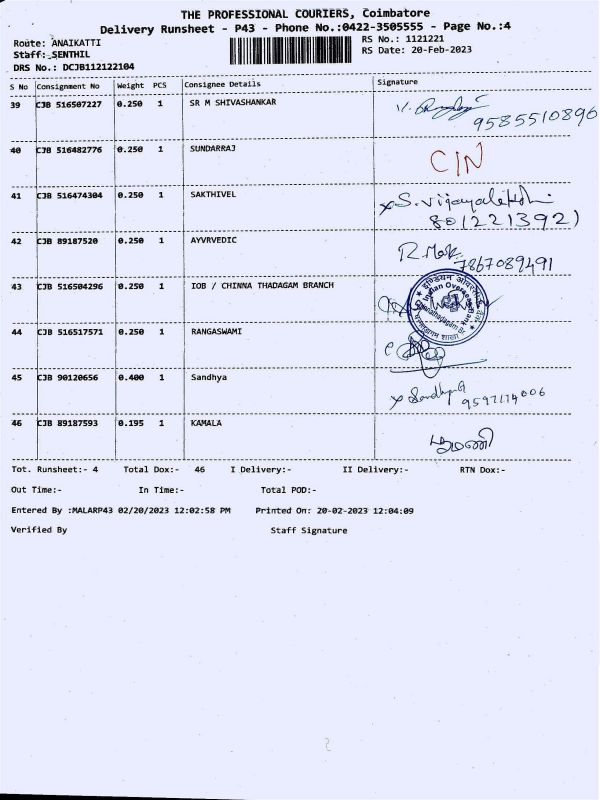 THE PROFESSIONAL COURIERS, Coimbatore
Delivery Runsheet - P43 - Phone No.:0422-3505555 - Page No.:4
Route: ANAIKATTI
RS No.: 1121221
Staff: SENTHIL
RS Date: 20-Feb-2023
DRS No.: DCJB112122104
S No Consignment No Weight PCS Consignee Details Signature
39 CJB 516507227 0.250 1 SR M SHIVASHANKAR
9585510896
40 CJB 516482776 0.250 1 SUNDARRAJ CIN
41 CJB 516474304 0.250 1 SAKTHIVEL
S. Vijayalakshmi
8012213921
42 CJB 89187520 0.250 1 AYVRVEDIC
7867089491
43 CJB 516504296 0.250 1 IOB / CHINNA THADAGAM BRANCH
Indian Overseas
44 CJB 516517571 0.250 1 RANGASWAMI
45 CJB 90120656 0.400 1 Sandhya
Sandhya
46 CJB 89187593 0.195 1 KAMALA
Tot. Runsheet:- 4 Total Dox:- 46 I Delivery:- II Delivery:- RTN Dox:-
Out Time:- In Time:- Total POD:-
Entered By :MALARP43 02/20/2023 12:02:58 PM Printed On: 20-02-2023 12:04:09
Verified By Staff Signature